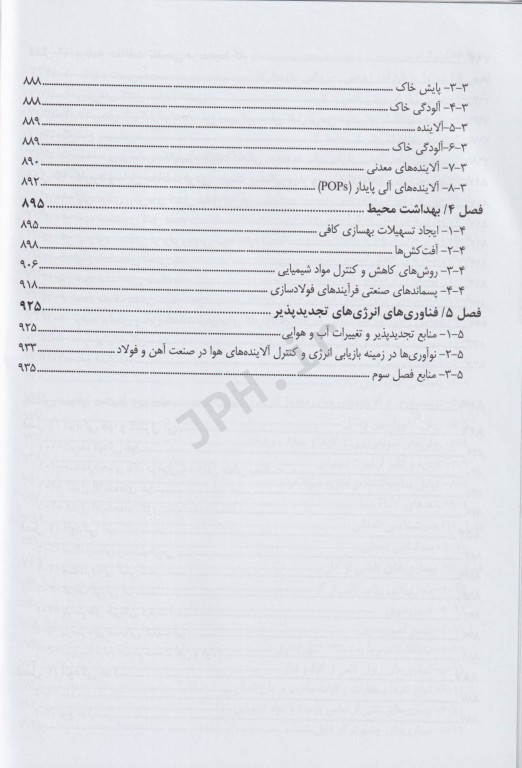 ۳-۳- پایش خاک ........ ۸۸۸
۳-۴- آلودگی خاک ........ ۸۸۸
۳-۵-آلاینده ........ ۸۸۹
۳-۶-آلودگی خاک ........ ۸۸۹
۳-۷- آلاینده‌های معدنی ........ ۸۹۰
۳-۸- آلاینده‌های آلی پایدار (POPs) ........ ۸۹۲
فصل ۴/ بهداشت محیط ........ ۸۹۵
۴-۱- ایجاد تسهیلات بهسازی کافی ........ ۸۹۵
۴-۲- آفت‌کش‌ها ........ ۸۹۸
۴-۳- روش‌های کاهش و کنترل مواد شیمیایی ........ ۹۰۶
۴-۴- پسماندهای صنعتی فرآیندهای فولادسازی ........ ۹۱۸
فصل ۵/ فناوری‌های انرژی‌های تجدیدپذیر ........ ۹۲۵
۵-۱- منابع تجدیدپذیر و تغییرات آب و هوایی ........ ۹۲۵
۵-۲- نوآوری‌ها در زمینه بازیابی انرژی و کنترل آلاینده‌های هوا در صنعت آهن و فولاد ........ ۹۳۳
۵-۳- منابع فصل سوم ........ ۹۳۵
JPH.ir